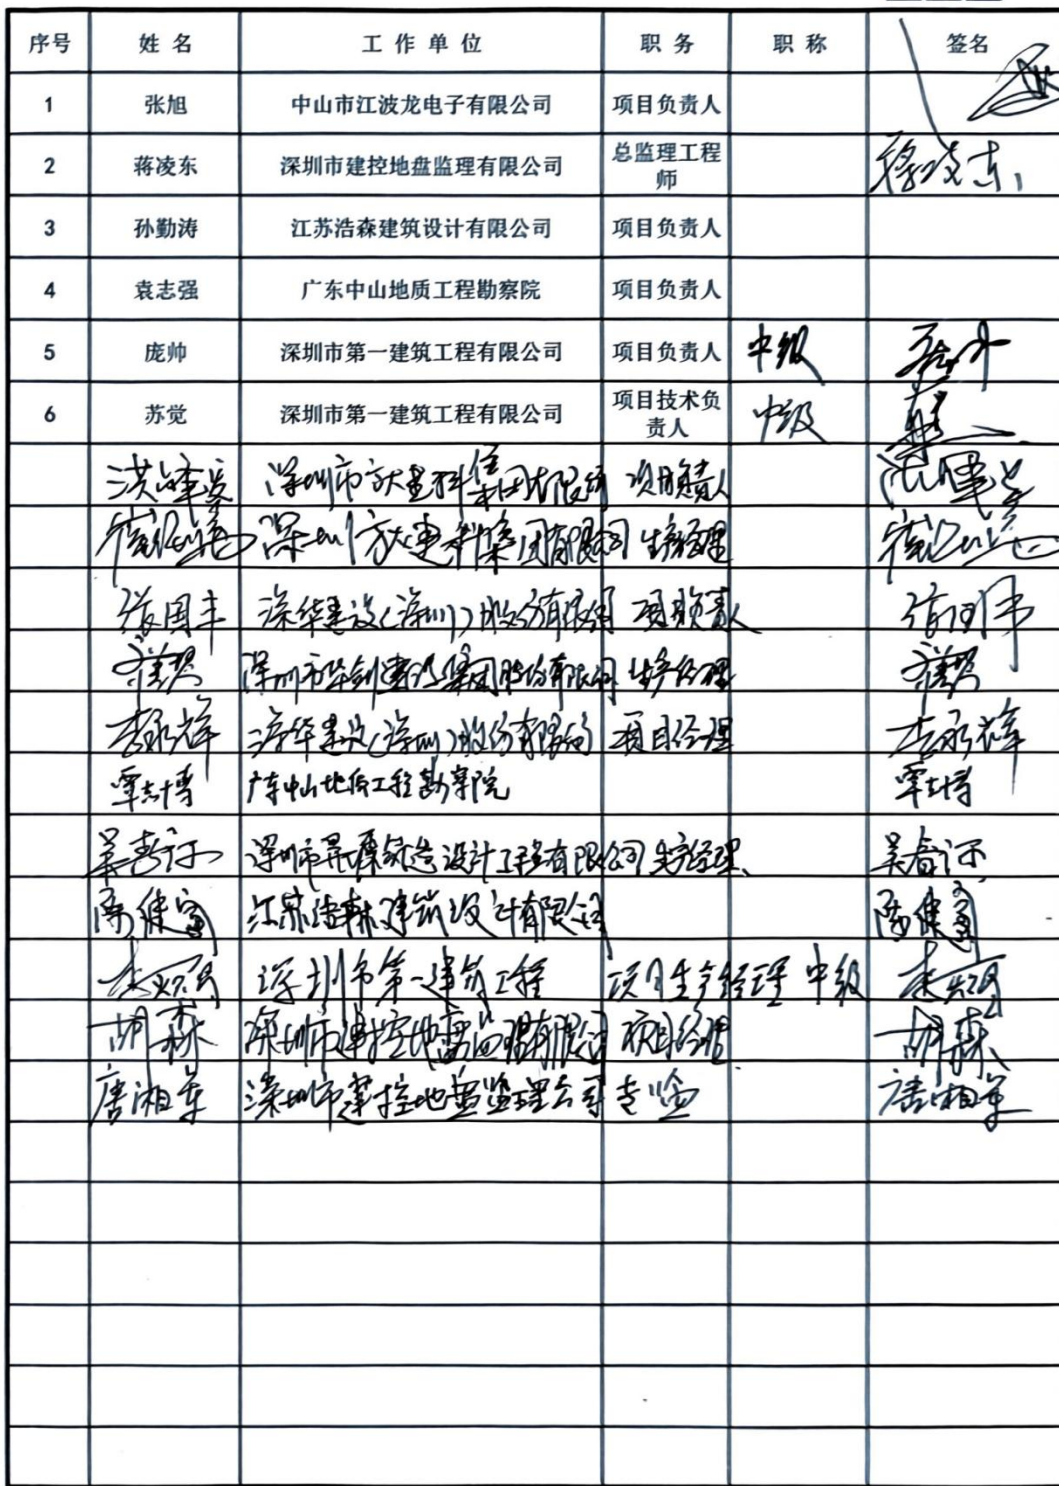 序号 姓名 工作单位 职务 职称 签名
1 张旭 中山市江波龙电子有限公司 项目负责人
2 蒋凌东 深圳市建控地盘监理有限公司 总监理工程师 蒋凌东
3 孙勤涛 江苏浩森建筑设计有限公司 项目负责人
4 袁志强 广东中山地质工程勘察院 项目负责人
5 庞帅 深圳市第一建筑工程有限公司 项目负责人 中级 庞帅
6 苏觉 深圳市第一建筑工程有限公司 项目技术负责人 中级
深圳市方大建科集团有限公司 项目负责人
深圳市方大建科集团有限公司 生产经理
张国丰 深华建设(深圳)股份有限公司 项目负责人
深圳市华剑建设集团股份有限公司 生产经理
李永辉 深华建设(深圳)股份有限公司 项目经理 李永辉
覃志博 广东中山地质工程勘察院 覃志博
深圳市 筑造设计工程有限公司 生产经理
陈健富 江苏浩森建筑设计有限公司 陈健富
深圳市第一建筑工程 项目生产经理 中级
胡森 深圳市建控地盘监理有限公司 项目经理 胡森
唐湘军 深圳市建控地盘监理公司 专监 唐湘军